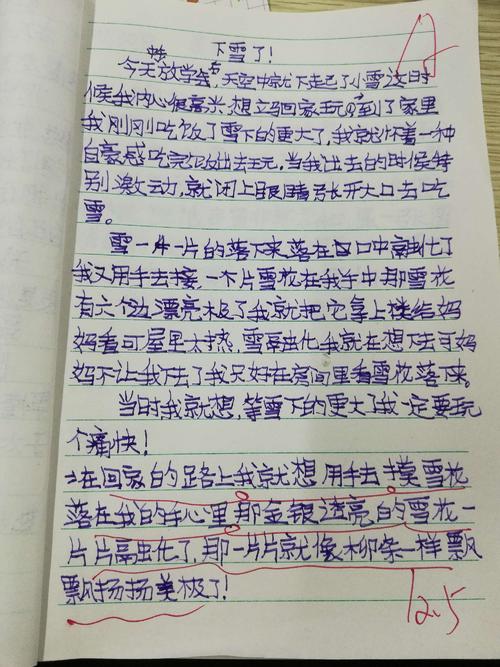 下雪了！
今天放学后，天空中就下起了小雪这时
候我内心很高兴，想立马回家玩。到了家里
我刚刚吃饭了雪下的更大了，我就怀着一种
自豪感吃完饭出去玩，当我出去的时候特
别激动，就闭上眼睛张开大口去吃
雪。
雪一片一片的落下来落在口中融化了
我又用手去接，一片雪花在我手中那雪花
有六个边漂亮极了我就把它拿上楼给妈
妈看可屋里太热，雪融化我就在想下去可妈
妈不让我下去了我只好在房间里看雪花落下来。
当时我就想，等雪下的更大了我一定要玩
个痛快！
在回家的路上我就想用手去摸雪花
落在我的手心里那金银透亮的雪花一
片片融化了，那一片片就像柳条一样飘
飘扬扬美极了！
12.5